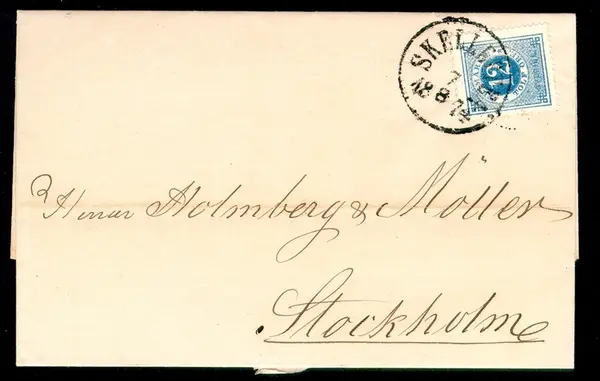 SKELLE
7
8
1874
12
TOLF
Herrar Holmberg & Möller
Stockholm